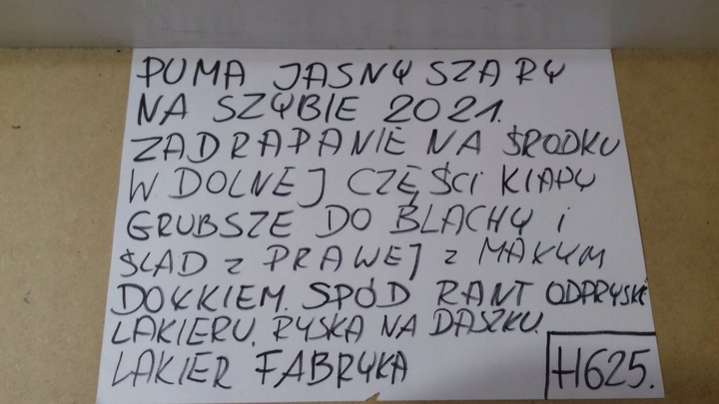 PUMA JASNY SZARY
NA SZYBIE 2021.
ZADRAPANIE NA ŚRODKU
W DOLNEJ CZĘŚCI KLAPY
GRUBSZE DO BLACHY i
ŚLAD z PRAWEJ z MAŁYM
DOŁKIEM. SPÓD RANT ODPRYSKI
LAKIERU. RYSKA NA DASZKU.
LAKIER FABRYKA
H625.